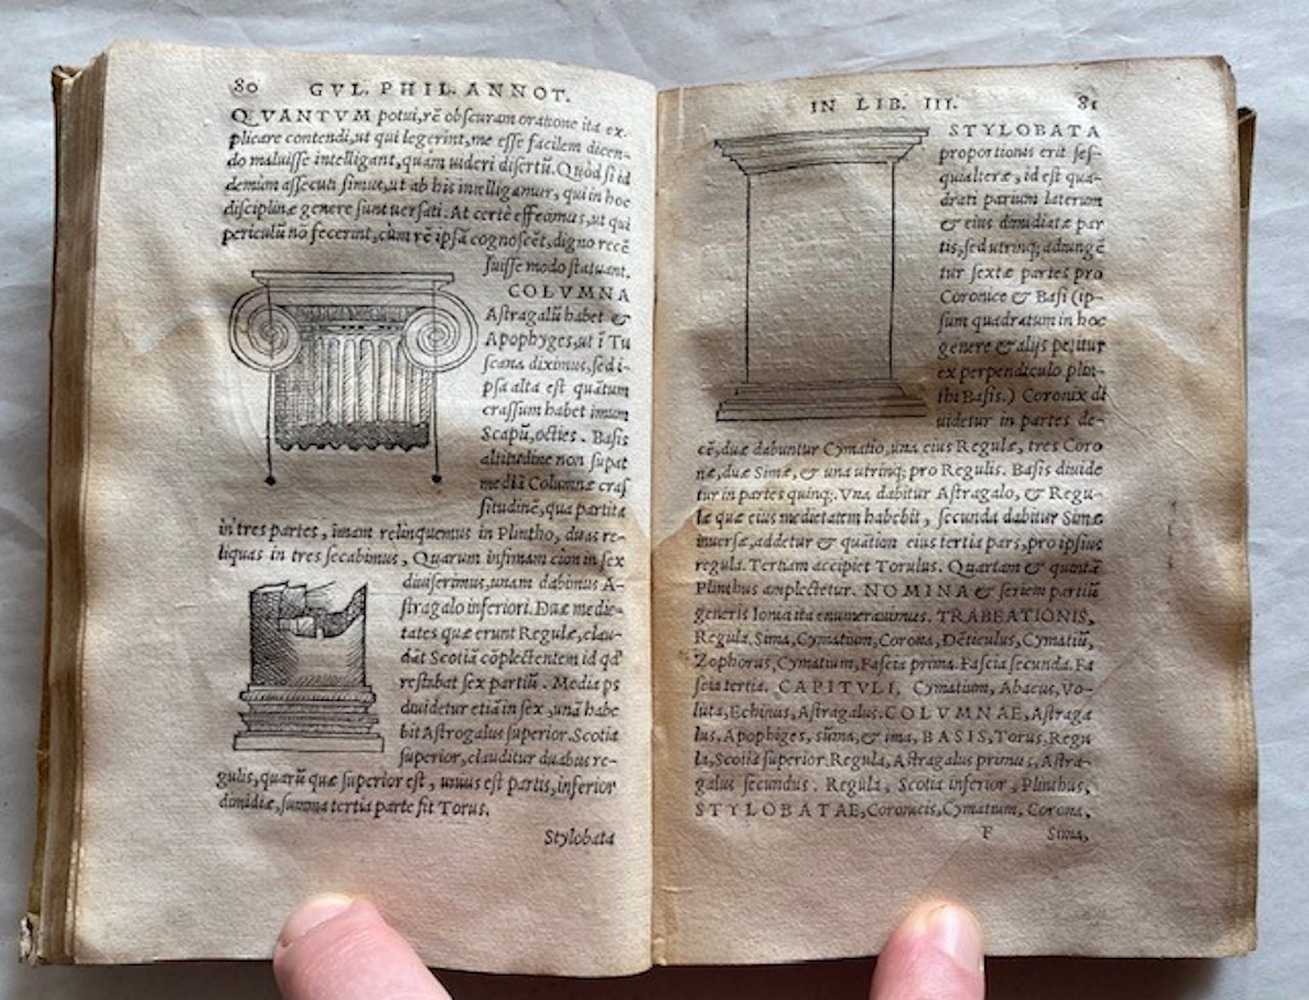 80 GVL. PHIL. ANNOT.
QVANTVM potui, rē obscuram oratione ita ex-
plicare contendi, ut qui legerint, me esse facilem dicen-
do maluisse intelligant, quàm uideri disertū. Quòd si id
demùm assecuti simus, ut ab his intelligamur, qui in hoc
disciplinæ genere sunt uersati. At certè effecimus, ut qui
periculū nō fecerint, cùm rē ipsā cognoscēt, digno recē
suisse modo statuant.
COLVMNA
Astragalū habet &
Apophyges, ut ī Tu
scana diximus, sed i-
psa alta est quātum
crassum habet imum
Scapū, octies. Basis
altitudine non supat
mediā Columnæ cras
situdinē, qua partita
in tres partes, imam relinquemus in Plintho, duas re-
liquas in tres secabimus, Quarum infimam cion in sex
diuiserimus, unam dabimus A-
stragalo inferiori. Duæ medie-
tates quæ erunt Regulæ, clau-
dāt Scotiā cōplectentem id qd
restabat sex partiū. Media ps
diuidetur etiā in sex, unā habe
bit Astrogalus superior. Scotia
superior, clauditur duabus re-
gulis, quarū quæ superior est, unius est partis, inferior
dimidiæ, summa tertia parte fit Torus.
Stylobata
IN LIB. III. 81
STYLOBATA
proportionis erit ses-
quialteræ, id est qua-
drati parium laterum
& eius dimidiatæ par
tis, sed utrinq; adiungē
tur sextæ partes pro
Coronice & Basi (ip-
sum quadratum in hoc
genere & alijs petitur
ex perpendiculo plin-
thi Basis.) Coronix di
uidetur in partes de-
cē, duæ dabuntur Cymatio, una eius Regulæ, tres Coro
næ, duæ Simæ, & una utrinq; pro Regulis. Basis diuide
tur in partes quinq;. Vna dabitur Astragalo, & Regu-
læ quæ eius medietatem habebit, secunda dabitur Simæ
inuersæ, addetur & quātum eius tertia pars, pro ipsius
regula. Tertiam accipiet Torulus. Quartam & quintā
Plinthus amplectetur. NOMINA & seriem partiū
generis Ionia ita enumerauimus. TRABEATIONIS,
Regula, Sima, Cymatium, Corona, Dēticulus, Cymatiū,
Zophorus, Cymatium, Fascia prima. Fascia secunda. Fa
scia tertia. CAPITVLI, Cymatium, Abacus, Vo-
luta, Echinus, Astragalus. COLVMNAE, Astraga
lus, Apophiges, sūma, & ima, BASIS, Torus, Regu
la, Scotia superior, Regula, Astragalus primus, Astra-
galus secundus. Regula, Scotia inferior, Plinthus,
STYLOBATAE, Coronicis, Cymatium, Corona,
F Sima,